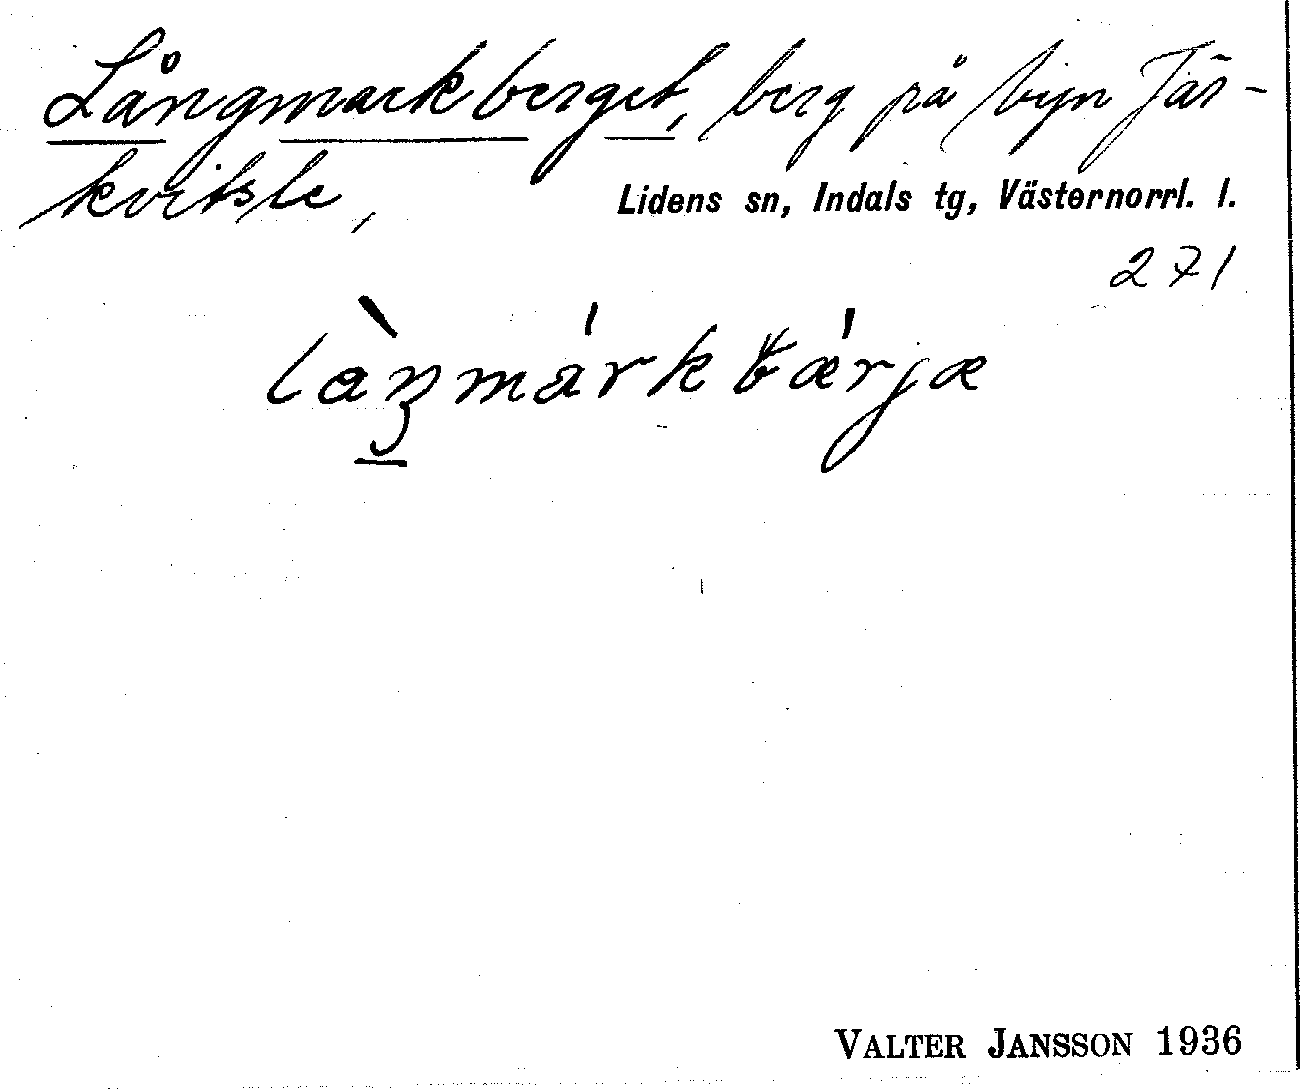 Långmarkberget, berg på byn Jär-
kvitsle,
Lidens sn, Indals tg, Västernorrl. l.
271
VALTER JANSSON 1936